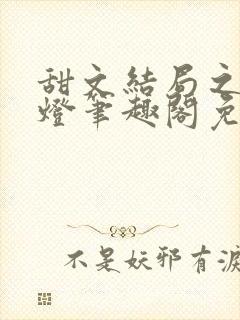 甜文結局之
燈筆趣閣免
不是妖邪有淚